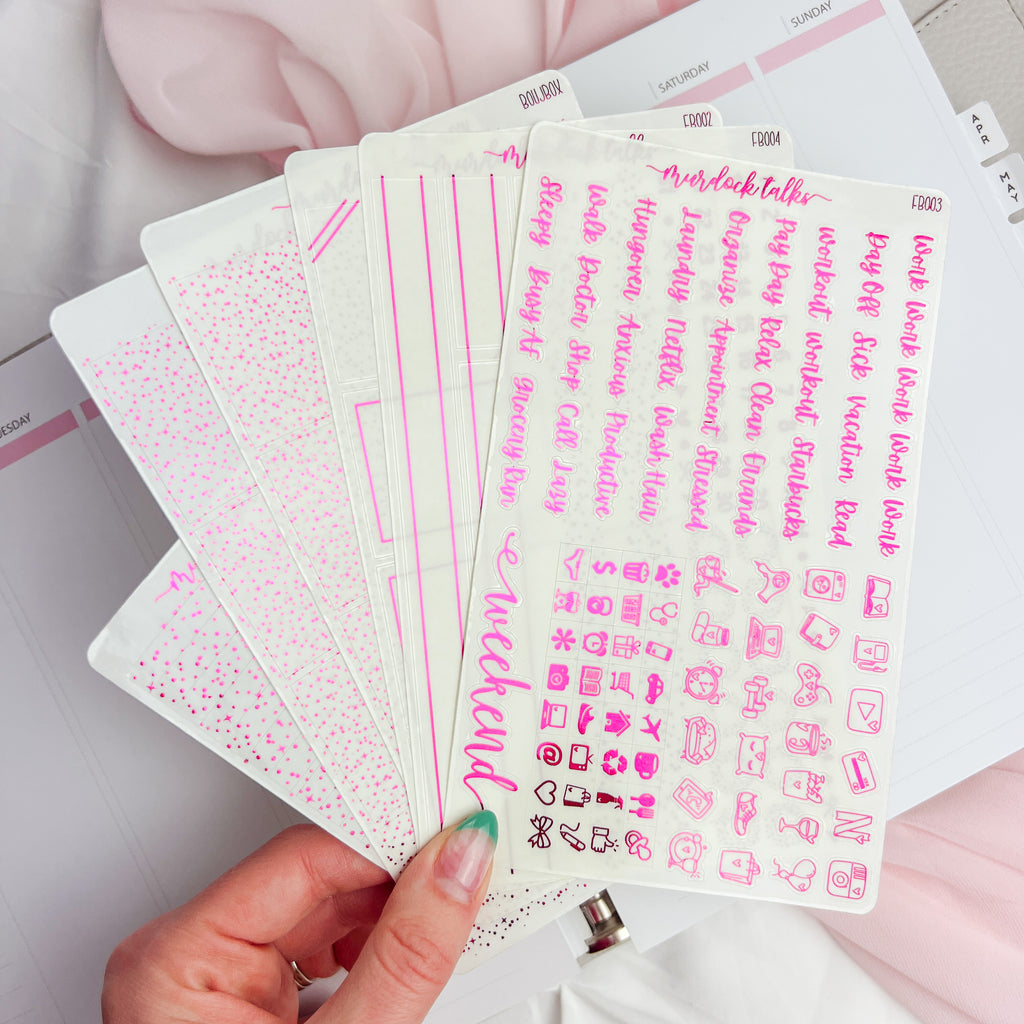 SUNDAY
SATURDAY
BOUJBOX
FB002
FB004
FB003
murdock talks
APR
MAY
Work Work Work Work Work Work
Day Off Sick Vacation Read
Workout Workout Starbucks
Pay Day Relax Clean Errands
Organize Appointment Stressed
Laundry Netflix Wash Hair
Hungover Anxious Productive
Walk Doctor Shop Call Lazy
Sleepy Busy AF Grocery Run
weekend